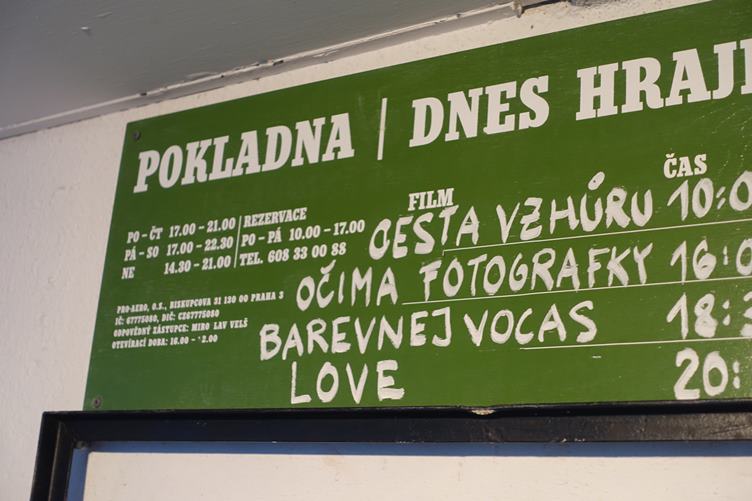 POKLADNA | DNES HRAJ
FILM ČAS
PO – ČT 17.00 – 21.00
PÁ – SO 17.00 – 22.30
NE 14.30 – 21.00
REZERVACE
PO – PÁ 10.00 – 17.00
TEL. 608 33 00 88
CESTA VZHŮRU 10:0
OČIMA FOTOGRAFKY 16:0
BAREVNEJ VOCAS 18:
LOVE 20:
PRO-AERO, O.S., BISKUPCOVA 31 130 00 PRAHA 3
IČ: 67775080, DIČ: CZ67775080
ODPOVĚDNÝ ZÁSTUPCE: MIRO LAV VELŠ
OTEVÍRACÍ DOBA: 16.00 – 2.00